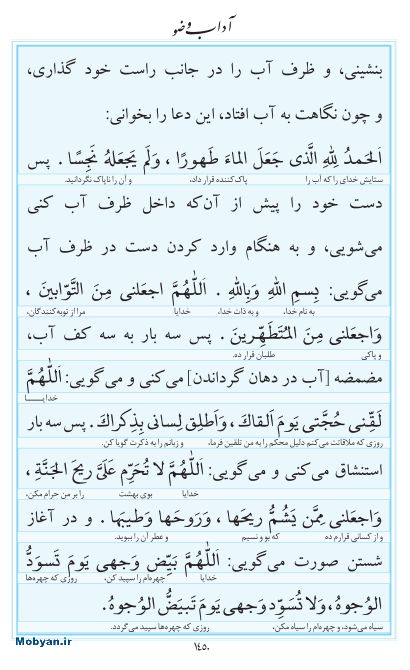 آداب وضو
بنشینی، و ظرف آب را در جانب راست خود گذاری،
و چون نگاهت به آب افتاد، این دعا را بخوانی:
اَلحَمدُ لِلّٰهِ الَّذی جَعَلَ الماءَ طَهورًا ، وَلَم یَجعَلهُ نَجِسًا . پس
ستایش خدای را که آب را پاک‌کننده قرار داد، و آن را ناپاک نگردانید.
دست خود را پیش از آن‌که داخل ظرف آب کنی
می‌شویی، و به هنگام وارد کردن دست در ظرف آب
می‌گویی: بِسمِ اللّٰهِ وَبِاللّٰهِ . اَللّٰهُمَّ اجعَلنی مِنَ التَّوّابینَ ،
به نام خدا، و به ذات خدا، خدایا مرا از توبه‌کنندگان،
وَاجعَلنی مِنَ المُتَطَهِّرینَ . پس سه بار به سه کف آب،
و پاکی طلبان قرار ده.
مضمضه [آب در دهان گرداندن] می‌کنی و می‌گویی: اَللّٰهُمَّ
خدایـــا
لَقِّنی حُجَّتی یَومَ اَلقاكَ ، وَاَطلِق لِسانی بِذِکراكَ . پس سه بار
روزی که ملاقاتت می‌کنم دلیل محکم را به من تلقین فرما، و زبانم را به ذکرت گویا کن.
استنشاق می‌کنی و می‌گویی: اَللّٰهُمَّ لا تُحَرِّم عَلَیَّ ریحَ الجَنَّةِ ،
خدایا بوی بهشت را بر من حرام مکن،
وَاجعَلنی مِمَّن یَشُمُّ ریحَها ، وَرَوحَها وَطیبَها . و در آغاز
و از کسانی قرارم ده که بو و نسیم و عطر آن را ببوید.
شستن صورت می‌گویی: اَللّٰهُمَّ بَیِّض وَجهی یَومَ تَسوَدُّ
خدایا چهره‌ام را سپید کن، روزی که چهره‌ها
الوُجوهُ، وَلا تُسَوِّد وَجهی یَومَ تَبیَضُّ الوُجوهُ.
سیاه می‌شود، و چهره‌ام را سیاه مکن، روزی که چهره‌ها سپید می‌گردد.
۱۴۵۰
Mobyan.ir